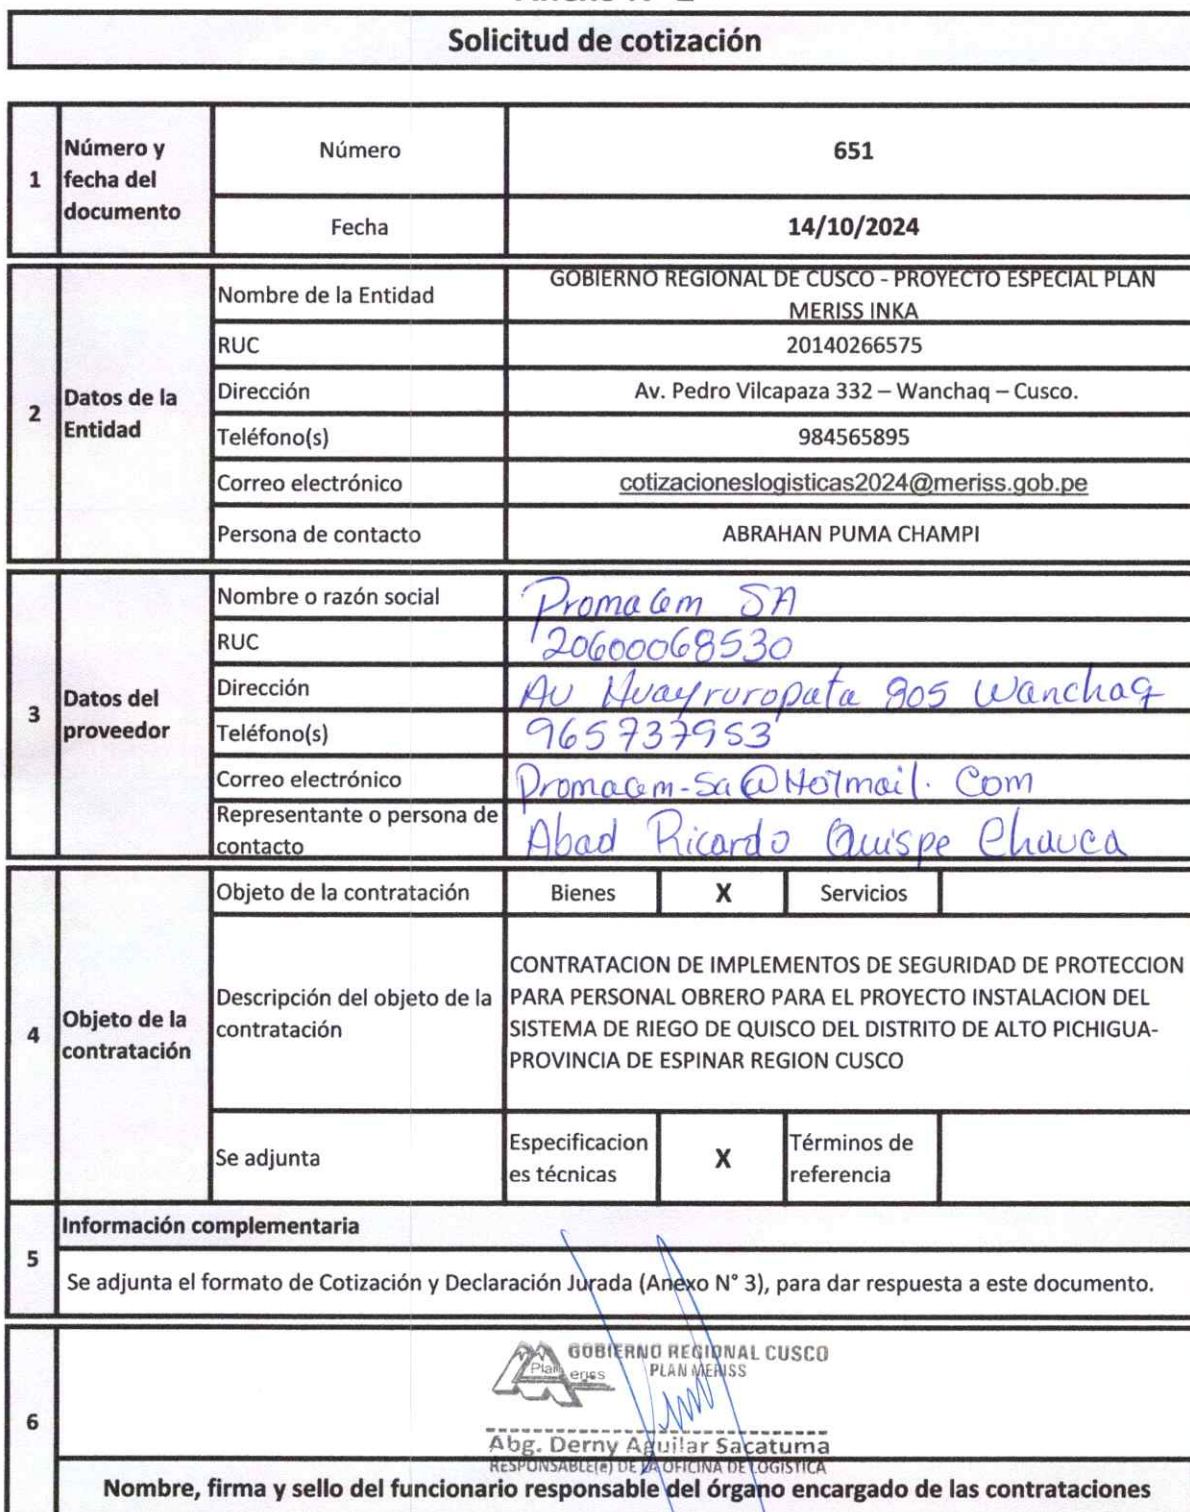 Solicitud de cotización
1
Número y fecha del documento
Número
651
Fecha
14/10/2024
2
Datos de la Entidad
Nombre de la Entidad
GOBIERNO REGIONAL DE CUSCO - PROYECTO ESPECIAL PLAN
MERISS INKA
RUC
20140266575
Dirección
Av. Pedro Vilcapaza 332 – Wanchaq – Cusco.
Teléfono(s)
984565895
Correo electrónico
cotizacioneslogisticas2024@meriss.gob.pe
Persona de contacto
ABRAHAN PUMA CHAMPI
3
Datos del proveedor
Nombre o razón social
Promacem SA
RUC
20600068530
Dirección
AV Huayruropata 905 Wanchaq
Teléfono(s)
965737953
Correo electrónico
Promacem-Sa@Hotmail.Com
Representante o persona de
contacto
Abad Ricardo Quispe Chauca
4
Objeto de la contratación
Objeto de la contratación
Bienes
X
Servicios
Descripción del objeto de la
contratación
CONTRATACION DE IMPLEMENTOS DE SEGURIDAD DE PROTECCION
PARA PERSONAL OBRERO PARA EL PROYECTO INSTALACION DEL
SISTEMA DE RIEGO DE QUISCO DEL DISTRITO DE ALTO PICHIGUA-
PROVINCIA DE ESPINAR REGION CUSCO
Se adjunta
Especificacion
es técnicas
X
Términos de
referencia
5
Información complementaria
Se adjunta el formato de Cotización y Declaración Jurada (Anexo N° 3), para dar respuesta a este documento.
6
GOBIERNO REGIONAL CUSCO
PLAN MERISS
Plan
eriss
Abg. Derny Aguilar Sacatuma
RESPONSABLE(e) DE LA OFICINA DE LOGISTICA
Nombre, firma y sello del funcionario responsable del órgano encargado de las contrataciones